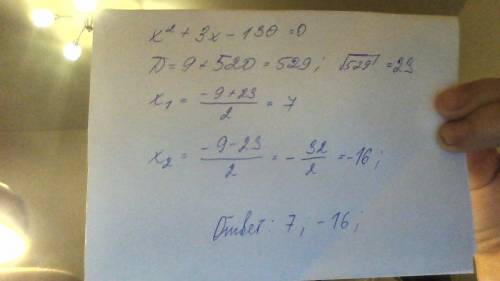 x² + 3x - 130 = 0
D = 9 + 520 = 529; √529 = 23
x₁ = (-9+23)/2 = 7
x₂ = (-9-23)/2 = -32/2 = -16;
Ответ: 7; -16;